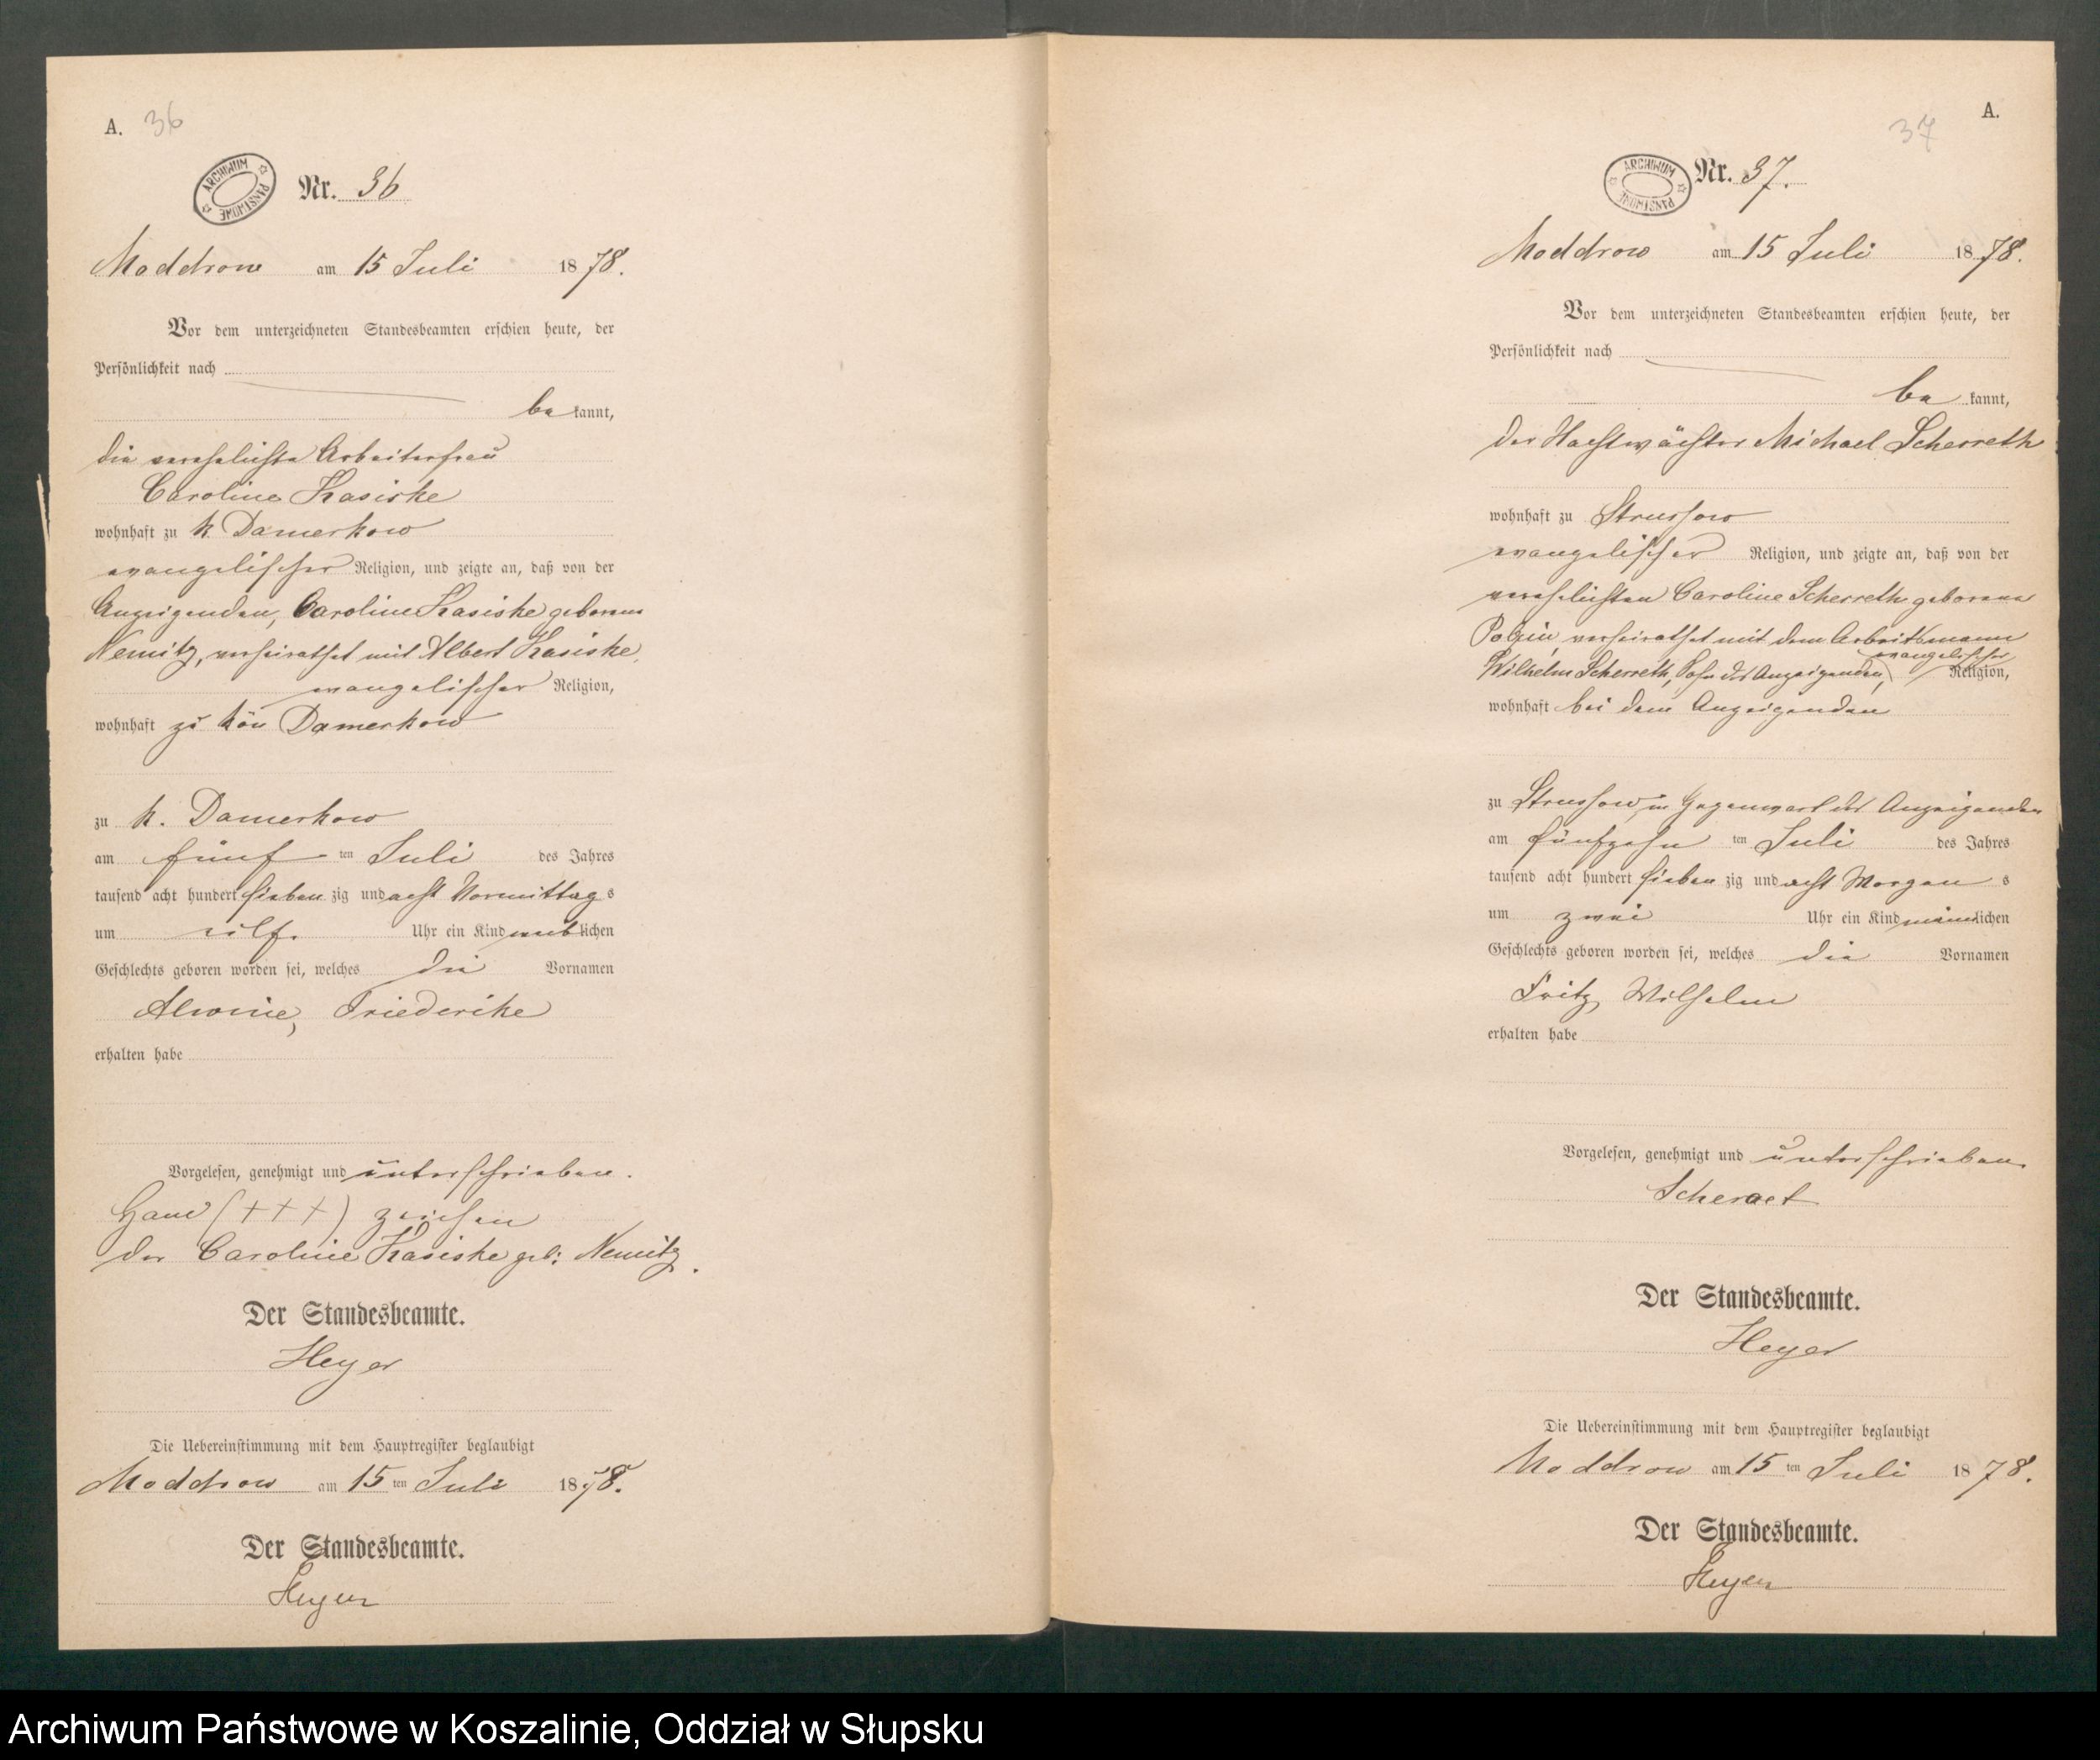 A. 36
ARCHIWUM PAŃSTWOWE
Nr. 36
Moddrow am 15 Juli 1878.
Vor dem unterzeichneten Standesbeamten erschien heute, der
Persönlichkeit nach
be kannt,
die verehelichte Arbeiterfrau
Caroline Kasiske
wohnhaft zu k. Damerkow
evangelischer Religion, und zeigte an, daß von der
Anzeigenden, Caroline Kasiske geborene
Nemitz, verheirathet mit Albert Kasiske,
evangelischer Religion,
wohnhaft zu kön Damerkow
zu k. Damerkow
am fünf ten Juli des Jahres
tausend acht hundert sieben zig und acht Vormittag s
um elf. Uhr ein Kind weiblichen
Geschlechts geboren worden sei, welches die Vornamen
Alwine, Friederike
erhalten habe
Vorgelesen, genehmigt und unterschrieben.
Hand (+++) zeichen
der Caroline Kasiske geb: Nemitz.
Der Standesbeamte.
Heyer
Die Uebereinstimmung mit dem Hauptregister beglaubigt
Moddrow am 15 ten Juli 1878.
Der Standesbeamte.
Heyer
A.
37
ARCHIWUM PAŃSTWOWE
Nr. 37.
Moddrow am 15 Juli 1878.
Vor dem unterzeichneten Standesbeamten erschien heute, der
Persönlichkeit nach
be kannt,
der Nachtwächter Michael Scherreth
wohnhaft zu Strussow
evangelischer Religion, und zeigte an, daß von der
verehelichten Caroline Scherreth geborene
verheirathet mit dem Arbeitsmann
evangelischer
Wilhelm Scherreth, Sohn des Anzeigenden, Religion,
wohnhaft bei dem Anzeigenden
zu Strussow in Gegenwart des Anzeigenden
am fünfzehn ten Juli des Jahres
tausend acht hundert sieben zig und acht Morgen s
um zwei Uhr ein Kind männlichen
Geschlechts geboren worden sei, welches die Vornamen
Fritz, Wilhelm
erhalten habe
Vorgelesen, genehmigt und unterschrieben.
Scheraet
Der Standesbeamte.
Heyer
Die Uebereinstimmung mit dem Hauptregister beglaubigt
Moddrow am 15 ten Juli 1878.
Der Standesbeamte.
Heyer
Archiwum Państwowe w Koszalinie, Oddział w Słupsku